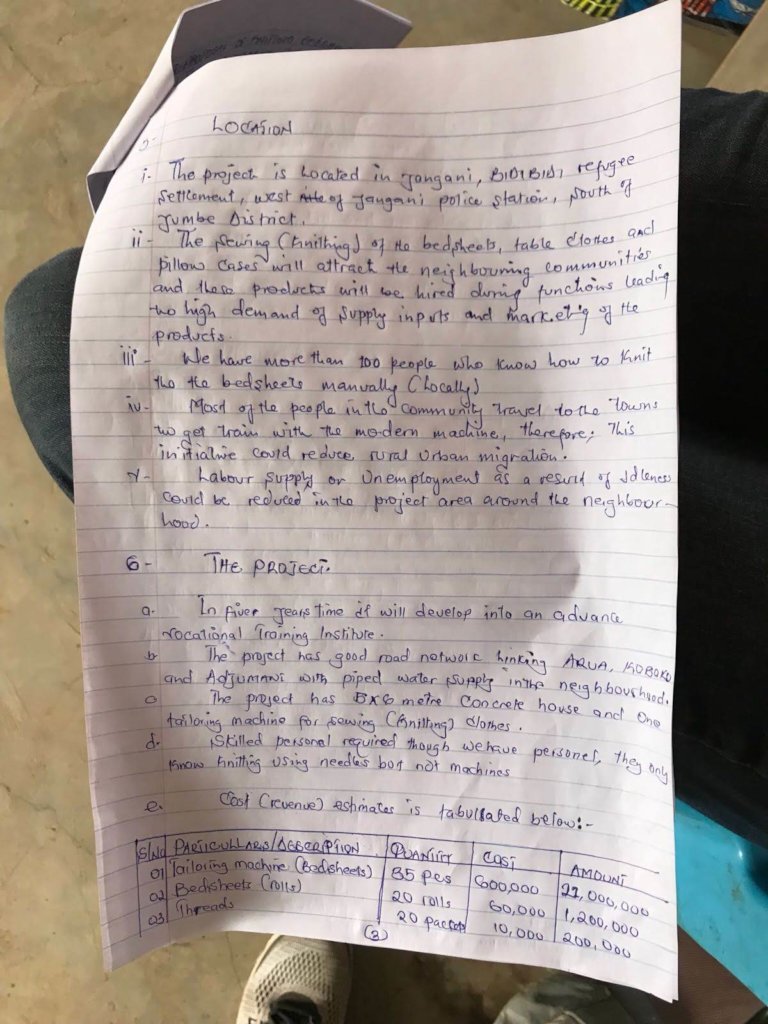 LOCATION
i- The project is Located in Jangani, BIDIBIDI refugee
settlement, west of Jangani police station, South of
Yumbe District.
ii - The Sewing (Knithing) of the bedsheets, table clothes and
pillow cases will attract the neighbouring communities
and these products will be hired during functions leading
to high demand of supply inputs and marketig of the
products.
iii - We have more than 100 people who know how to knit
the the bedsheets manually (Locally)
iv - Most of the people in the community travel to the towns
to get train with the modern machine, therefore; This
initiative could reduce rural urban migration.
v- Labour supply or Unemployment as a result of Idleness
could be reduced in the project area around the neighbour-
hood.
6- THE PROJECT.
a. In fiver years time it will develop into an advance
vocational Training Institute.
b The project has good road network linking ARUA, KOBOKO
and ADJUMANI with piped water supply in the neighbourhood.
c The project has 5x6 metre Concrete house and one
tailoring machine for sewing (knitting) clothes.
d. Skilled personal required though we have personel, they only
know knitting using needles but not machines
e. Cost (revenue) estimates is tabullated below:-
S/No PARTICULLARS/DESCRIPTION QUANTITY COST AMOUNT
01 Tailoring machine (Bedsheets) 35 pcs 600,000 21,000,000
02 Bedsheets (rolls) 20 rolls 60,000 1,200,000
03 Threads 20 packets 10,000 200,000
(3)